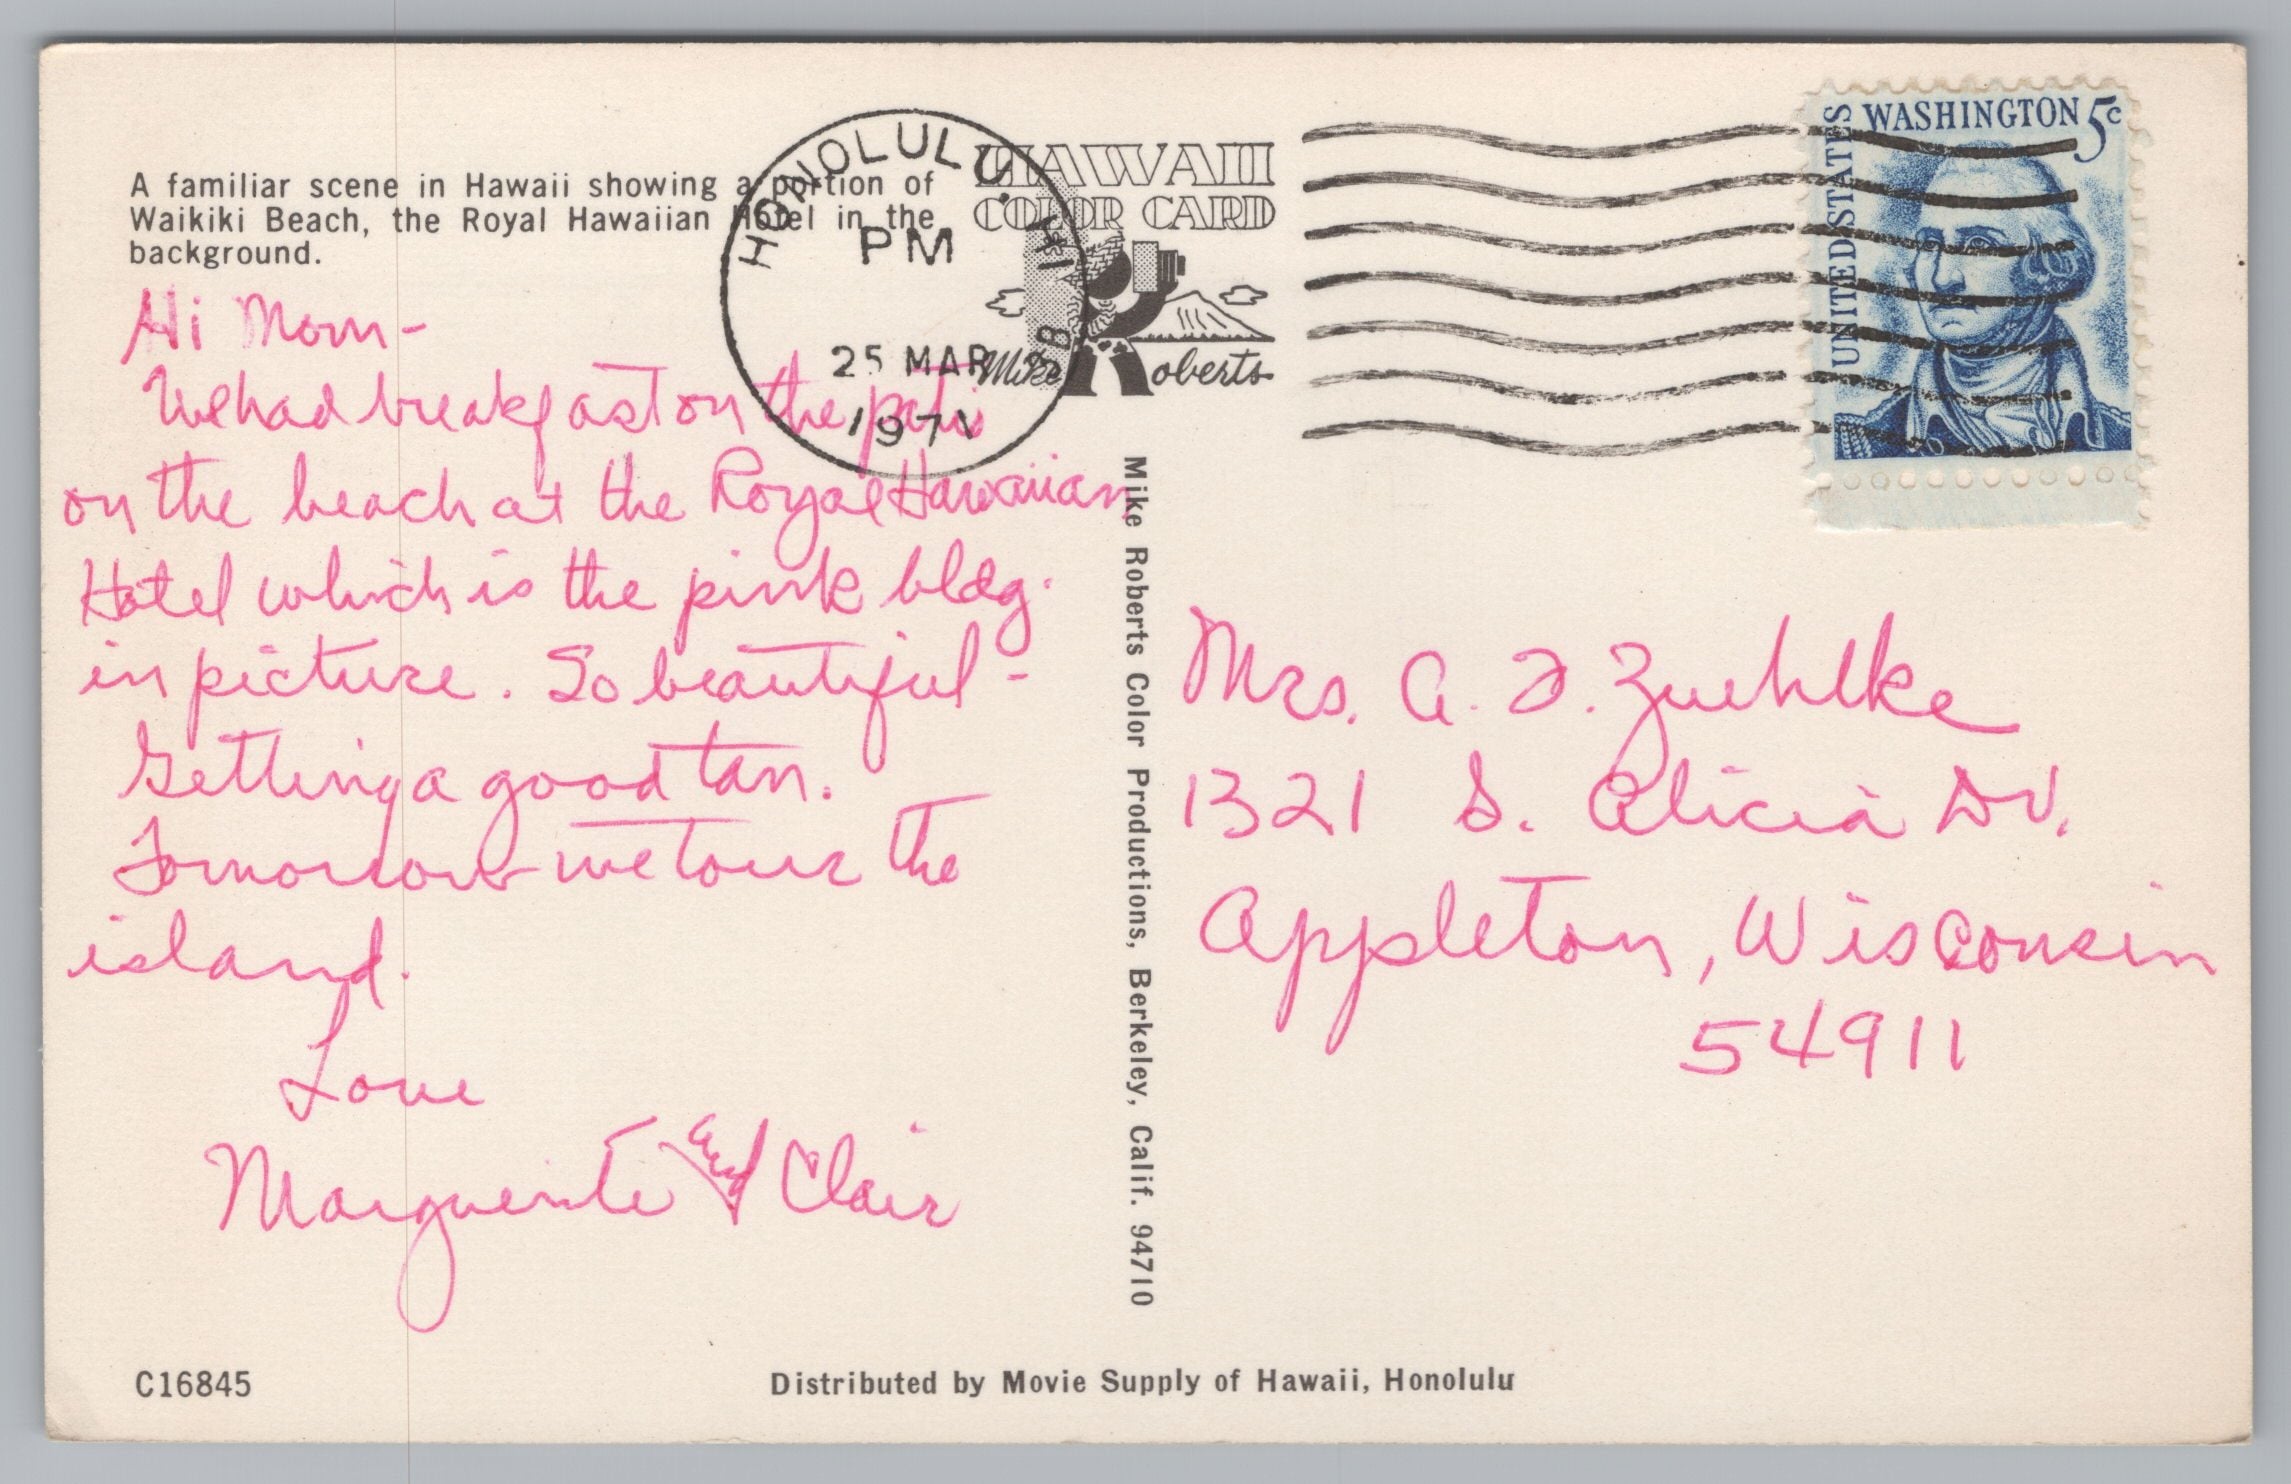 A familiar scene in Hawaii showing a portion of
Waikiki Beach, the Royal Hawaiian Hotel in the
background.
Hi Mom-
We had breakfast on the patio
on the beach at the Royal Hawaiian
Hotel which is the pink bldg.
in picture. So beautiful -
Getting a good tan.
Tomorrow we tour the
island.
Love
Marguerite and Clair
C16845
HONOLULU, HI
PM
25 MAR
1971
HAWAII
COLOR CARD
Mike Roberts
Mike Roberts Color Productions, Berkeley, Calif. 94710
UNITED STATES
WASHINGTON 5c
Mrs. A. F. Zuehlke
1321 S. Alicia Dr.
Appleton, Wisconsin
54911
Distributed by Movie Supply of Hawaii, Honolulu